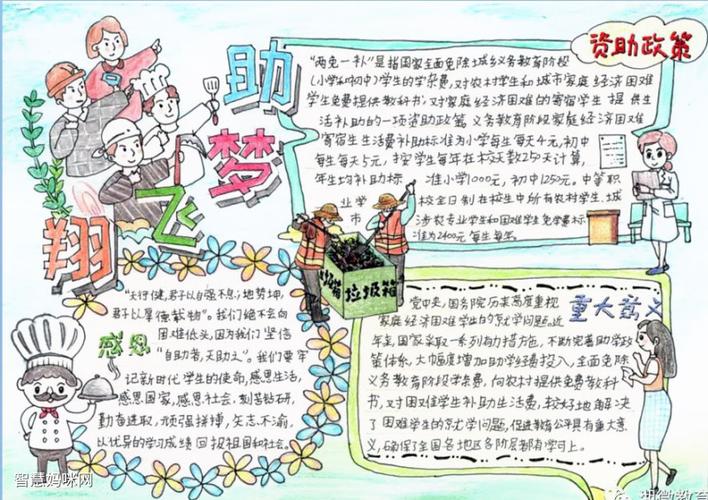 助梦
飞翔
资助政策
"两免一补"是指国家全面免除城乡义务教育阶段
(小学和初中)学生的学杂费,对农村学生和城市家庭经济困难
学生免费提供教科书,对家庭经济困难的寄宿学生提供生
活补助的一项资助政策。义务教育阶段家庭经济困难
寄宿生生活费补助标准为小学每生每天4元,初中
每生每天5元,按学生每年在校天数250天计算,
年生均补助标准小学1000元,初中1250元。中等职
业学校全日制在校生中所有农村学生、城
市涉农专业学生和困难学生免学费标
准为2400元每生每年。
垃圾箱
感恩
"天行健,君子以自强不息;地势坤,
君子以厚德载物"。我们绝不会向
困难低头,因为我们坚信
"自助者,天助之"。我们要牢
记新时代学生的使命,感恩生活,
感恩国家,感恩社会,刻苦钻研,
勤奋进取,顽强拼搏,矢志不渝,
以优异的学习成绩回报祖国和社会。
重大意义
党中央,国务院历来高度重视
家庭经济困难学生的就学问题。近
年来,国家采取一系列有力措施,不断完善助学政
策体系,大幅度增加助学经费投入,全面免除
义务教育阶段学杂费,向农村提供免费教科
书,对困难学生补助生活费,较好地解决
了困难学生的就学问题,促进教育公平具有重大意
义,确保了全国各地区各阶层都有学可上。
智慧妈咪网